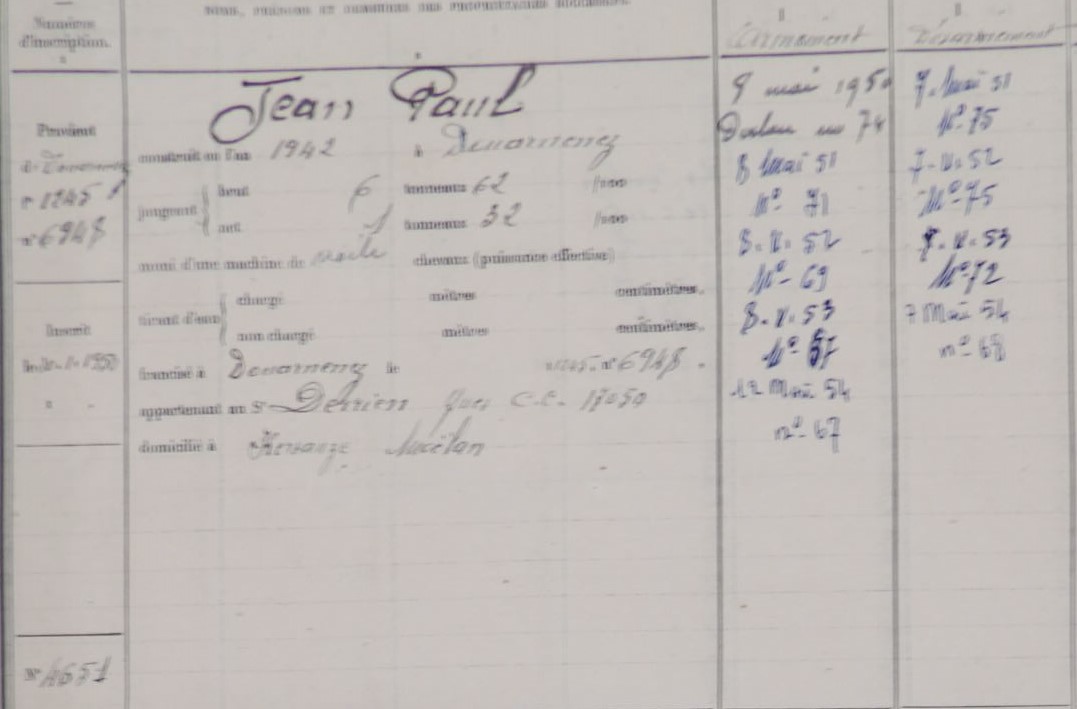 Numéros
d'inscription.
Armement
Désarmement
Jean Paul
construit en l'an 1942 à Douarnenez
jaugeant
brut 6 tonneaux 62 /100
net 1 tonneaux 32 /100
muni d'une machine de chevaux (puissance effective)
tirant d'eau
chargé mètres centimètres.
non chargé mètres centimètres.
francisé à Douarnenez le n° 6948.
appartenant au Sr Derrien Yves C.C. 17050
domicilié à
Provient
de Douarnenez
f° 1245
n° 6948
Inscrit
le 1950
N° 4651
9 mai 1950
n° 74
8 Mai 51
N° 71
8. V. 52
N° 69
8. V. 53
N° 67
12 Mai 54
n° 67
7 Mai 51
N° 75
7. V. 52
N° 75
7. V. 53
N° 72
7 Mai 54
n° 68